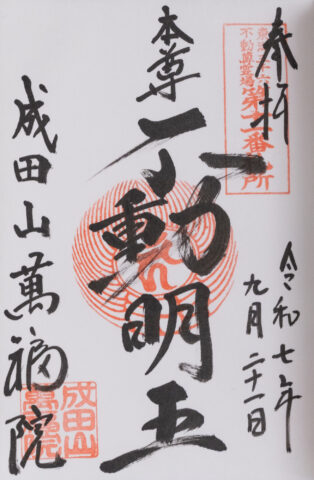 奉拝
東海三十六
不動尊霊場
第十二番札所
令和七年
九月二十一日
本尊
不動明王
成田山萬福院
成田山
萬福院